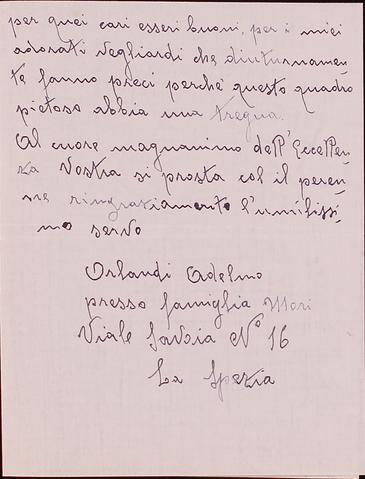 per quei cari esseri buoni, per i miei
adorati vegliardi che diuturnamen-
te fanno preci perchè questo quadro
pietoso abbia una tregua.
Al cuore magnanimo dell'Eccellen-
za Vostra si prosta col il peren-
ne ringraziamento l'umilissi-
mo servo
Orlandi Adelmo
presso famiglia Mori
Viale Savoia N° 16
La Spezia